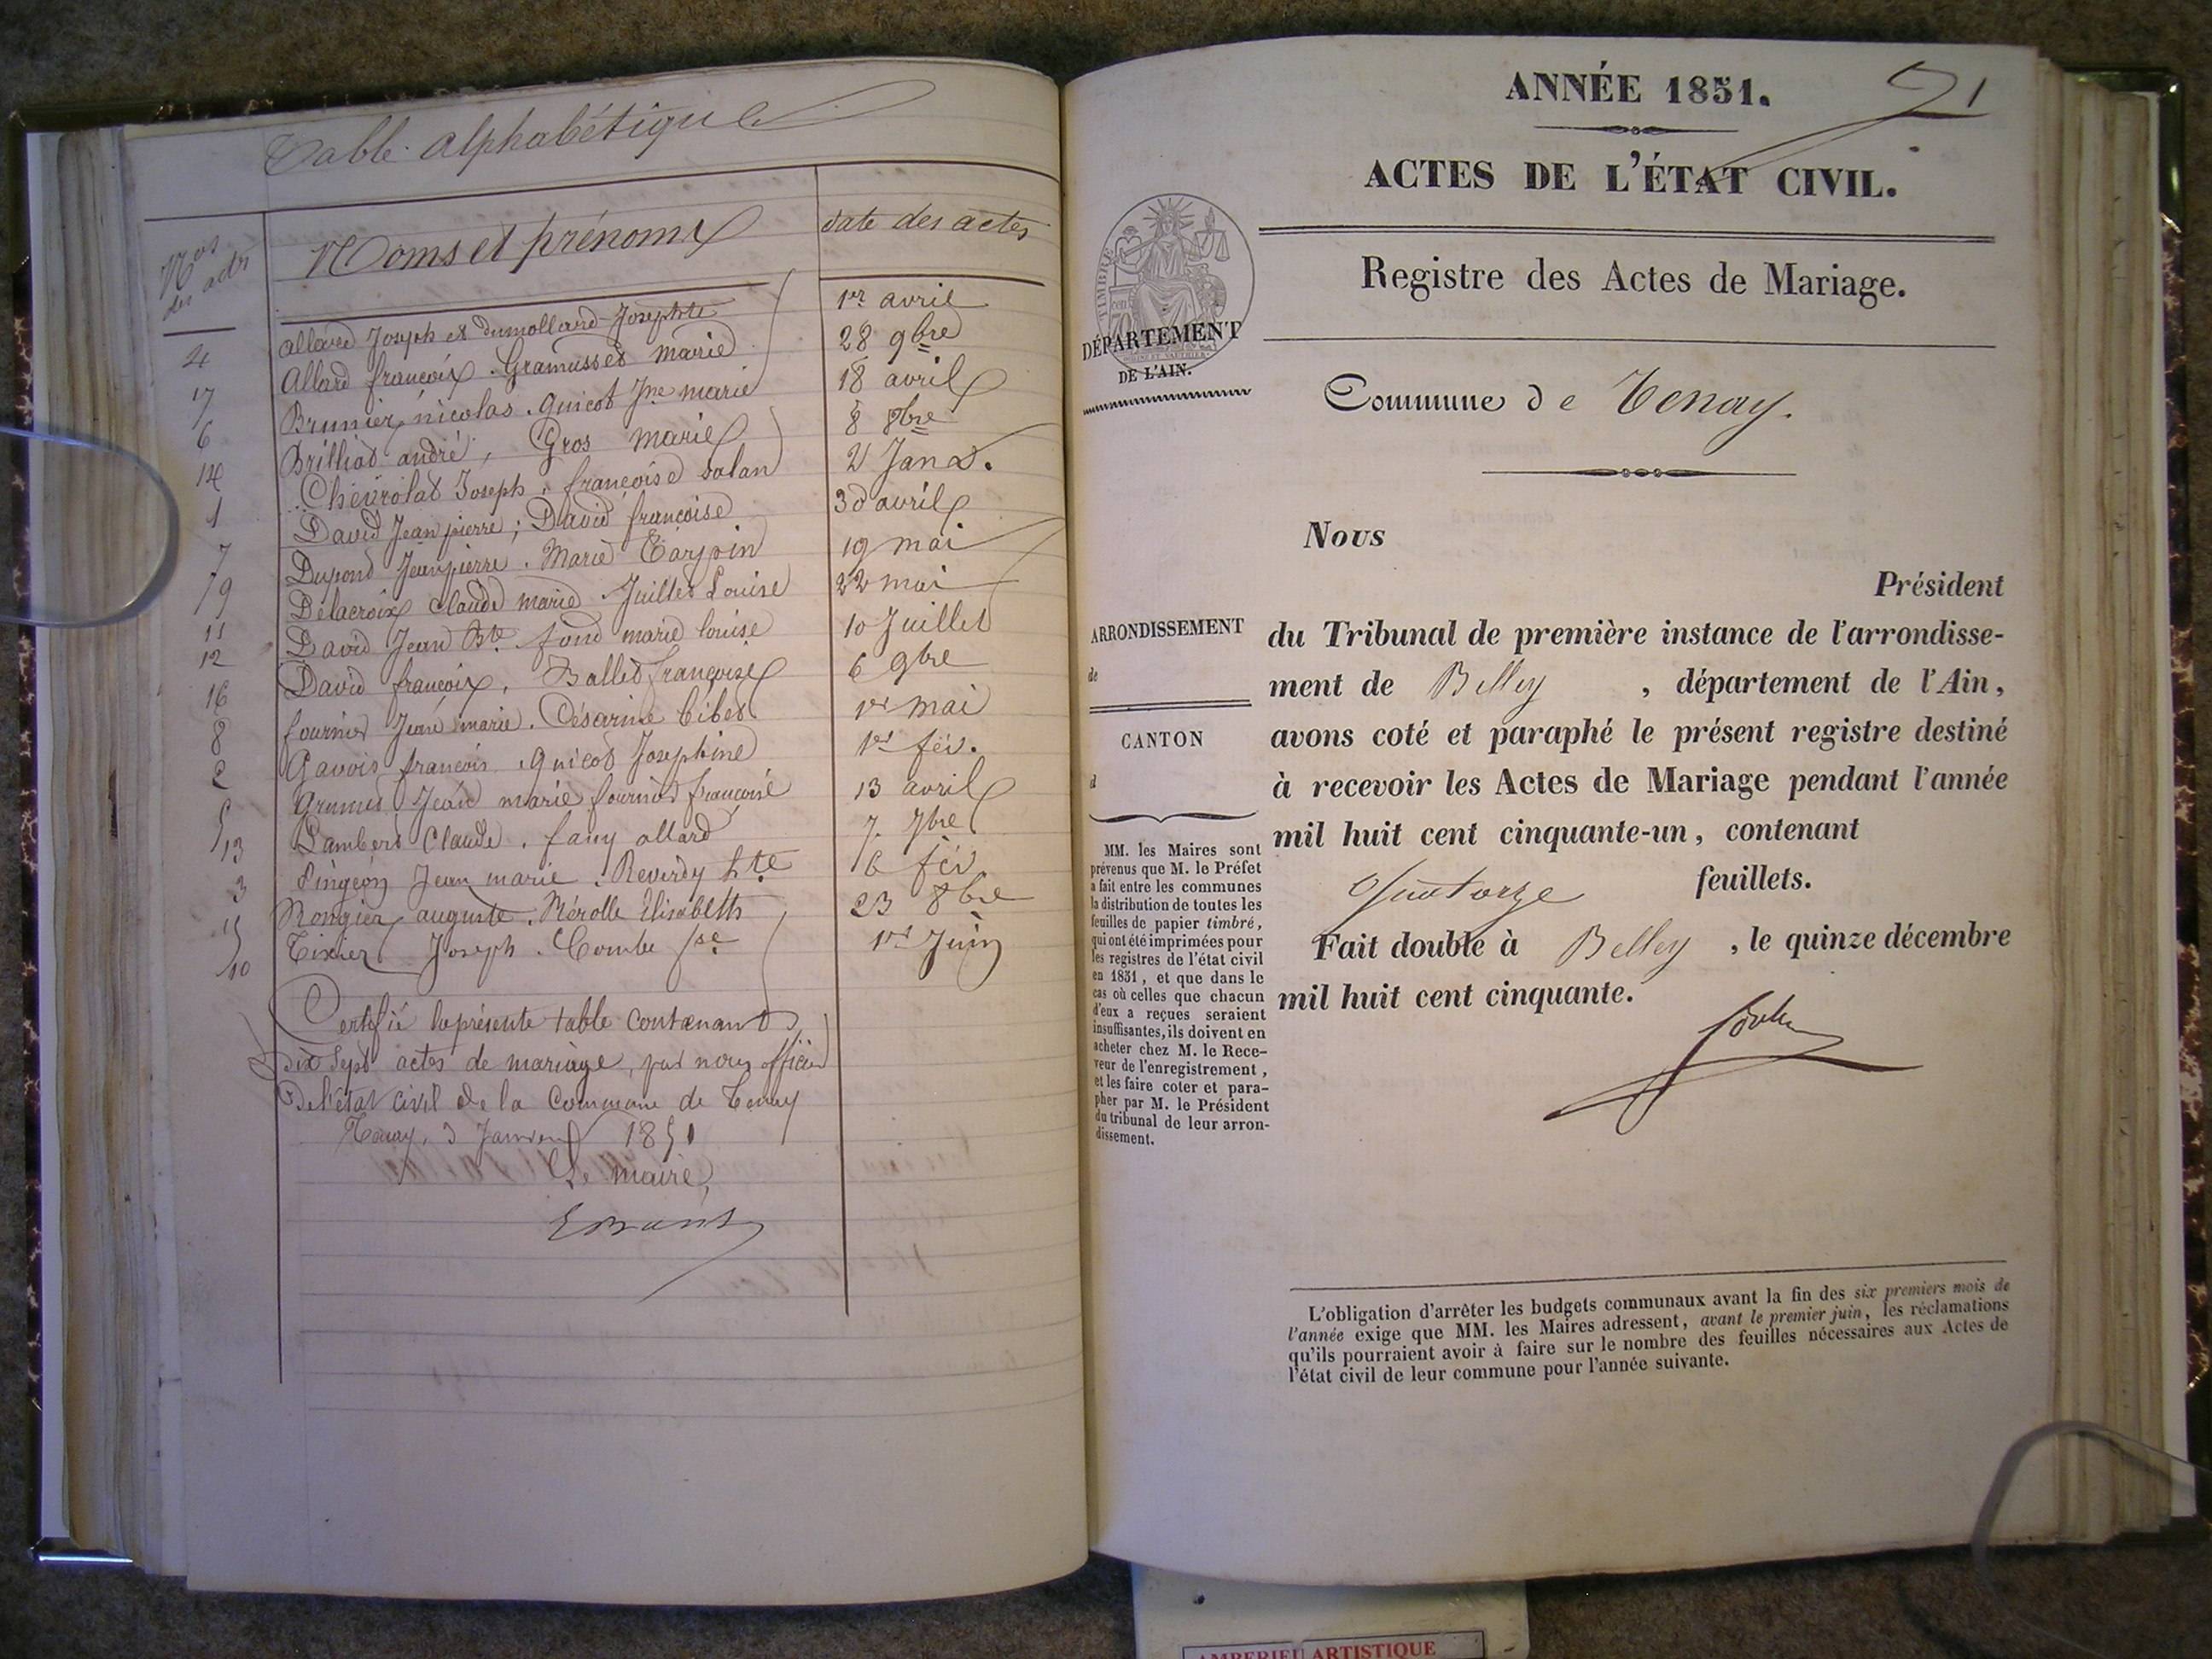 Table alphabétique
Nos des actes
Noms et prénoms
date des actes
4 Allard Joseph et Dumollard Josephte 1er avril
17 Allard françois. Gramusset marie 28 9bre
6 Brunier nicolas. Guicot Jne marie 18 avril
14 Brilliat andré, Gros marie 8 8bre
1 Chevrolat Joseph. françoise 21 Janv.
7 David Jean pierre; David françoise 30 avril
9 Dupond Jean pierre. Marie 19 mai
11 Delacroix Claude marie. Juillet Louise 22 mai
12 David Jean Bte. fond marie louise 10 Juillet
16 David françois, Ballet françoise 6 9bre
8 fournier Jean marie. Césarine 1er mai
2 Gavois françois. Guicot Josephine 1er fév.
5 Jean marie fournier françoise 13 avril
13 Lambert Claude. fany allard 7. 7bre
3 Pingeon Jean marie. Reverdy hte 6 fév
15 Rongier auguste. Nérolle Elisabeth 23 8bre
10 Tixier Joseph. Combe fse 1er Juin
Certifié la présente table contenant
dix sept actes de mariage, par nous officier
de l'état civil de la Commune de Tenay
Tenay, 3 Janvier 1851
Le maire,
ANNÉE 1851.
1
ACTES DE L'ÉTAT CIVIL.
Registre des Actes de Mariage.
TIMBRE
DÉPARTEMENT
DE L'AIN.
Commune de Tenay.
Nous
Président
du Tribunal de première instance de l'arrondisse-
ment de Belley, département de l'Ain,
avons coté et paraphé le présent registre destiné
à recevoir les Actes de Mariage pendant l'année
mil huit cent cinquante-un, contenant
Quatorze feuillets.
Fait double à Belley, le quinze décembre
mil huit cent cinquante.
ARRONDISSEMENT
de
CANTON
d
MM. les Maires sont
prévenus que M. le Préfet
a fait entre les communes
la distribution de toutes les
feuilles de papier timbré,
qui ont été imprimées pour
les registres de l'état civil
en 1851, et que dans le
cas où celles que chacun
d'eux a reçues seraient
insuffisantes, ils doivent en
acheter chez M. le Rece-
veur de l'enregistrement,
et les faire coter et para-
pher par M. le Président
du tribunal de leur arron-
dissement.
L'obligation d'arrêter les budgets communaux avant la fin des six premiers mois de
l'année exige que MM. les Maires adressent, avant le premier juin, les réclamations
qu'ils pourraient avoir à faire sur le nombre des feuilles nécessaires aux Actes de
l'état civil de leur commune pour l'année suivante.
AMBERIEU ARTISTIQUE